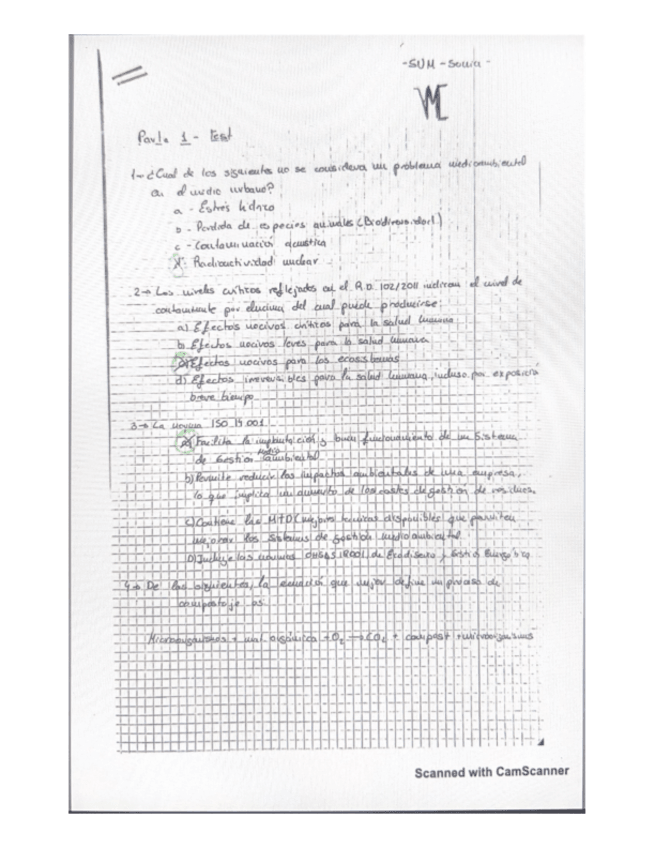 - SUM - Sonia -
Parte 1 - Test
1- ¿Cual de los siguientes no se considera un problema mediambiental
en el medio urbano?
a - Estrés hídrico
b - Perdida de especies animales (Biodiversidad)
c - Contaminación acústica
Radioactividad nuclear
2-> Los niveles críticos reflejados en el R.D. 102/2011 indican el nivel de
contaminante por encima del cual puede producirse:
a) Efectos nocivos críticos para la salud humana
b) Efectos nocivos leves para la salud humana
c) Efectos nocivos para los ecosistemas
d) Efectos irreversibles para la salud humana, incluso por exposición
breve tiempo.
3-> La norma ISO 14.001
a) Facilita la implantación y buen funcionamiento de un Sistema
de Gestión medioambiental
b) Permite reducir los impactos ambientales de una empresa,
lo que implica un aumento de los costes de gestión de residuos.
c) Contiene las MTD (mejores técnicas disponibles que permiten
mejorar los sistemas de gestión medioambiental
D) Incluye las normas OHSAS 18001, de Ecodiseño y Gestión Energética
4-> De las siguientes, la ecuación que mejor define un proceso de
compostaje es:
Microorganismos + mat orgánica + O2 -> CO2 + compost + microorganismos
Scanned with CamScanner